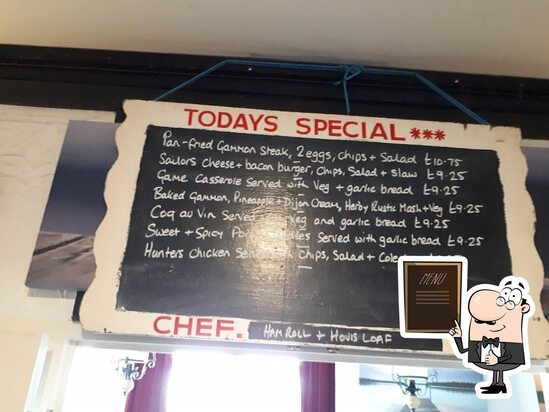 TODAYS SPECIAL ***
Pan-fried Gammon Steak, 2 eggs, chips + Salad £10.75
Sailors Cheese + bacon burger, Chips, Salad + Slaw £9.25
Game Casserole Served with Veg + garlic bread £9.25
Baked Gammon, Pineapple + Dijon Cream, Herby Rustic Mash + Veg £9.25
Coq au Vin Served veg and garlic bread £9.25
Sweet + Spicy Served with garlic bread £9.25
Hunters Chicken Served Chips, Salad +
CHEF. HAM ROLL + HOVIS LOAF
MENU